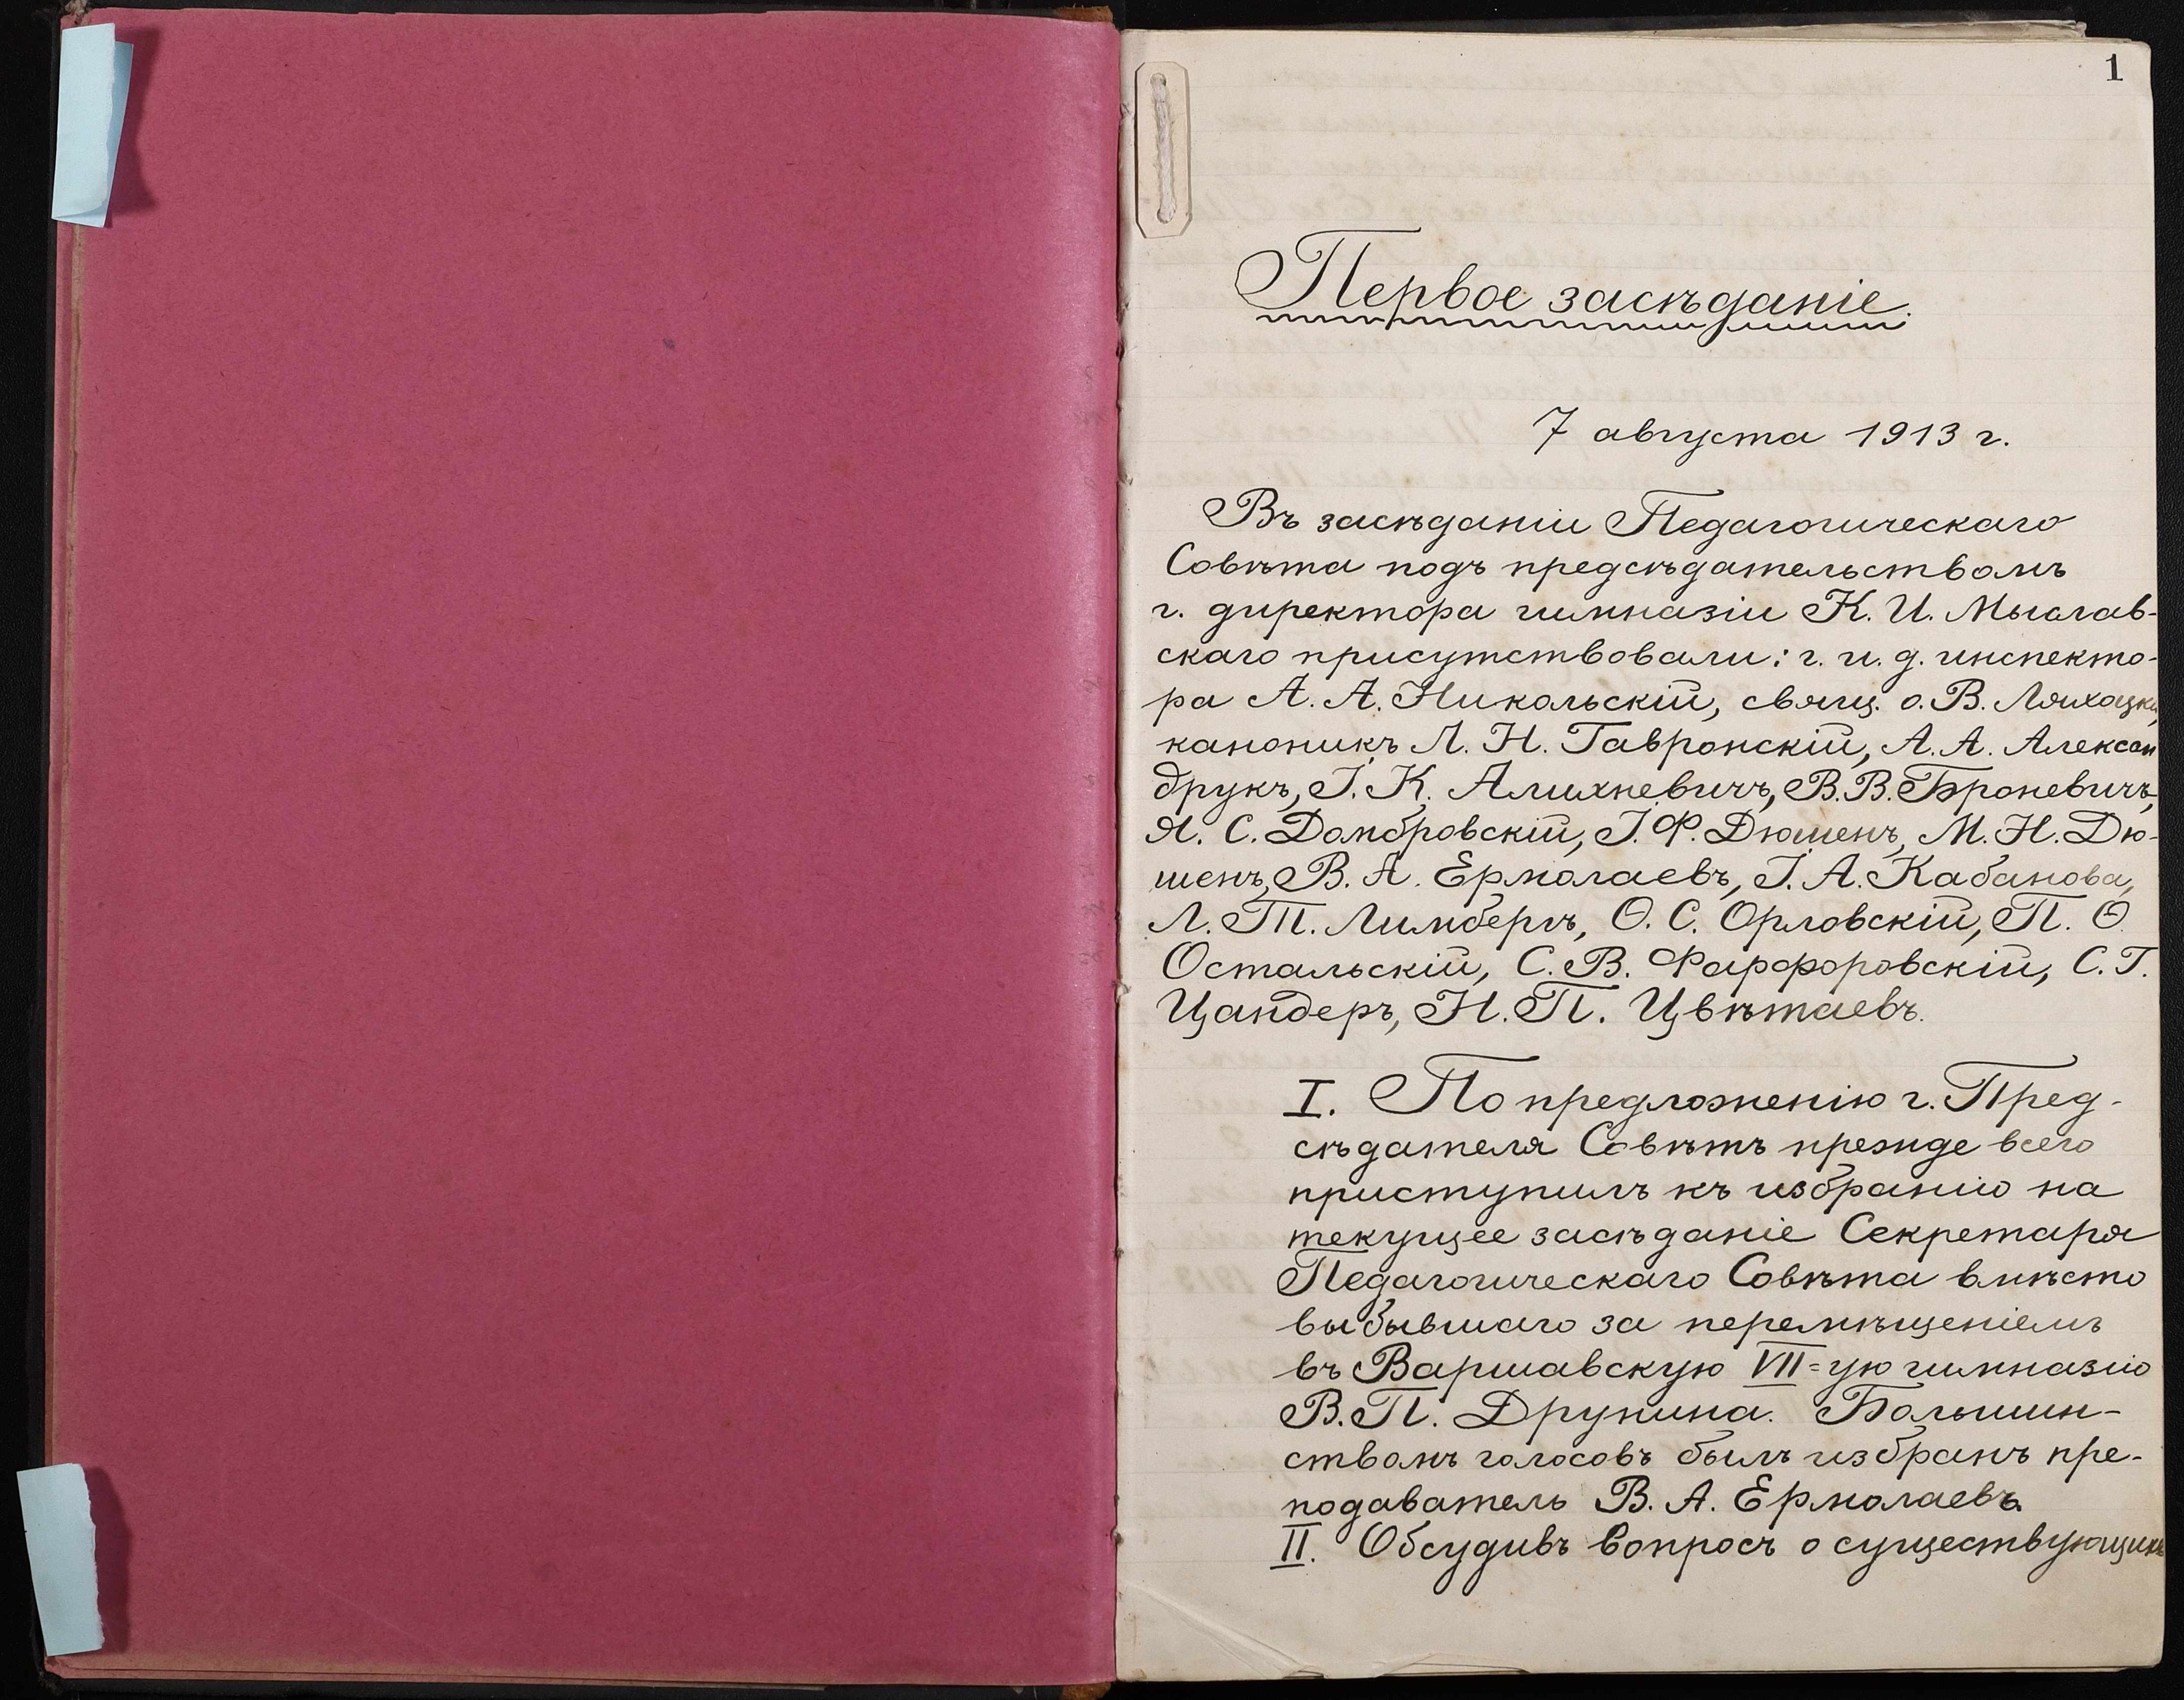 1
Первое засѣданіе.
7 августа 1913 г.
Въ засѣданіи Педагогическаго
Совѣта подъ предсѣдательствомъ
г. директора гимназіи К. И. Мыглав-
скаго присутствовали: г. и. д. инспекто-
ра А. А. Никольскій, свящ. о. В. Ляхоцкій,
каноникъ Л. Н. Гавронскій, А. А. Алексан
друкъ, I. К. Алихневичъ, В. В. Броневичъ,
Я. С. Домбровскій, I. Ф. Дюшенъ, М. Н. Дю-
шенъ, В. А. Ермолаевъ, I. А. Кабанова,
Л. Т. Лимбергъ, О. С. Орловскій, П. О.
Остальскій, С. В. Фарфоровскій, С. Г.
Цандеръ, Н. П. Цвѣтаевъ.
I. По предложенію г. Пред-
сѣдателя Совѣтъ прежде всего
приступилъ къ избранію на
текущее засѣданіе Секретаря
Педагогическаго Совѣта вмѣсто
выбывшаго за перемѣщеніемъ
въ Варшавскую VII=ую гимназію
В. П. Друнина. Большин-
ствомъ голосовъ былъ избранъ пре-
подаватель В. А. Ермолаевъ.
II. Обсудивъ вопросъ о существующихъ